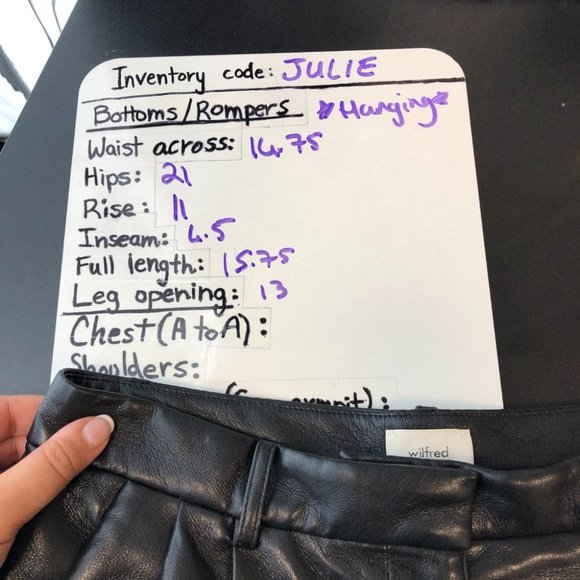 Inventory code: JULIE
Bottoms/Rompers *Hanging*
Waist across: 14.75
Hips: 21
Rise: 11
Inseam: 4.5
Full length: 15.75
Leg opening: 13
Chest (A to A):
Shoulders:
armpit):
wilfred